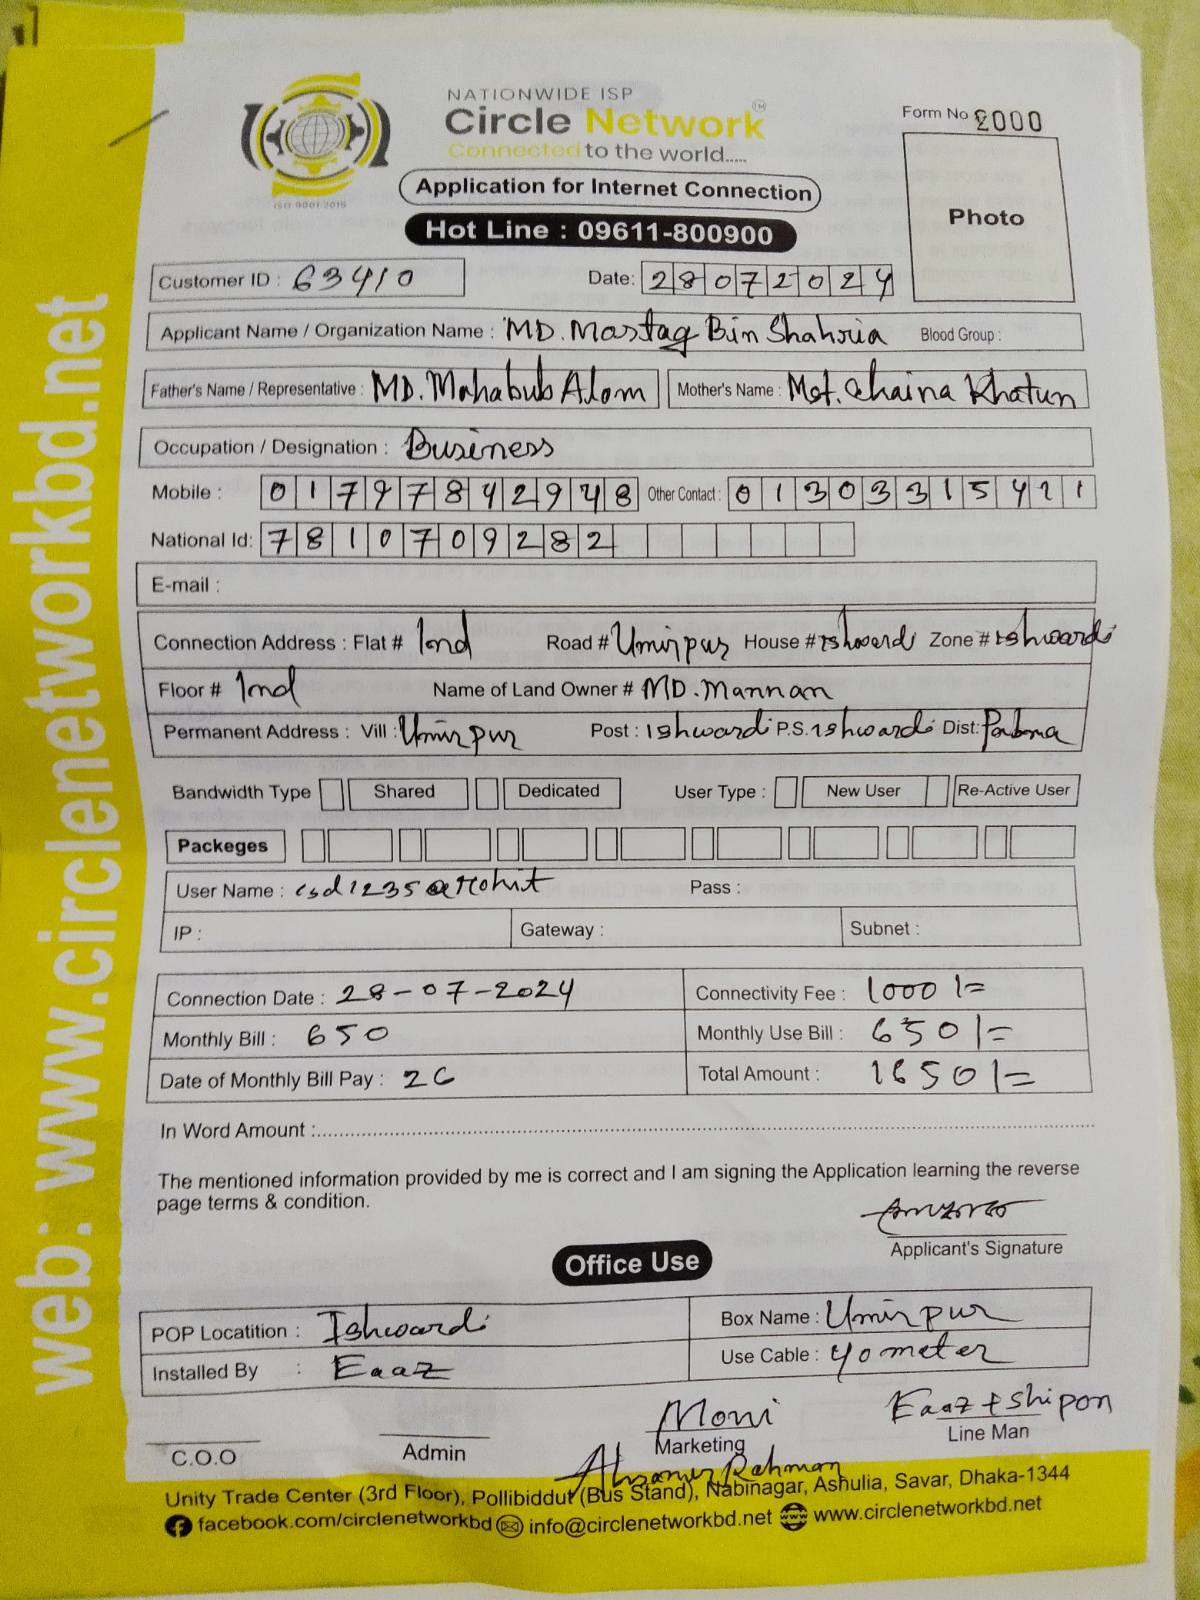 NATIONWIDE ISP
Circle Network TM
Connected to the world.....
ISO 9001:2015
Form No 2000
Application for Internet Connection
Hot Line : 09611-800900
Photo
Customer ID : 63410 Date: 28072024
Applicant Name / Organization Name : MD. Mostag Bin Shahria Blood Group :
Father's Name / Representative : MD. Mahabub Alom Mother's Name : Mst. Chaina Khatun
Occupation / Designation : Business
Mobile : 01797842948 Other Contact : 01303315421
National Id: 7810709282
E-mail :
Connection Address : Flat # 1nd Road # Umirpur House # Ishwardi Zone # Ishwardi
Floor # 1nd Name of Land Owner # MD. Mannan
Permanent Address : Vill : Umirpur Post : Ishwardi P.S. Ishwardi Dist: Pabna
Bandwidth Type Shared Dedicated User Type : New User Re-Active User
Packeges
User Name : csd1235@rohit Pass :
IP : Gateway : Subnet :
Connection Date : 28-07-2024 Connectivity Fee : 1000/=
Monthly Bill : 650 Monthly Use Bill : 650/=
Date of Monthly Bill Pay : 26 Total Amount : 1650/=
In Word Amount :
The mentioned information provided by me is correct and I am signing the Application learning the reverse
page terms & condition.
Applicant's Signature
Office Use
POP Locatition : Ishwardi Box Name : Umirpur
Installed By : Eaaz Use Cable : 40 meter
Moni Eaaz + Shipon
C.O.O Admin Marketing Line Man
Rahman
Unity Trade Center (3rd Floor), Pollibiddut (Bus Stand), Nabinagar, Ashulia, Savar, Dhaka-1344
facebook.com/circlenetworkbd info@circlenetworkbd.net www.circlenetworkbd.net
web: www.circlenetworkbd.net